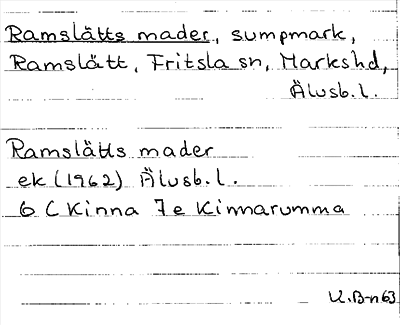 Ramslätts mader, sumpmark,
Ramslätt, Fritsla sn, Markshd,
Älvsb. l.
Ramslätts mader
ek (1962) Älvsb. l.
6 C Kinna 7 e Kinnarumma
U.B-n 63